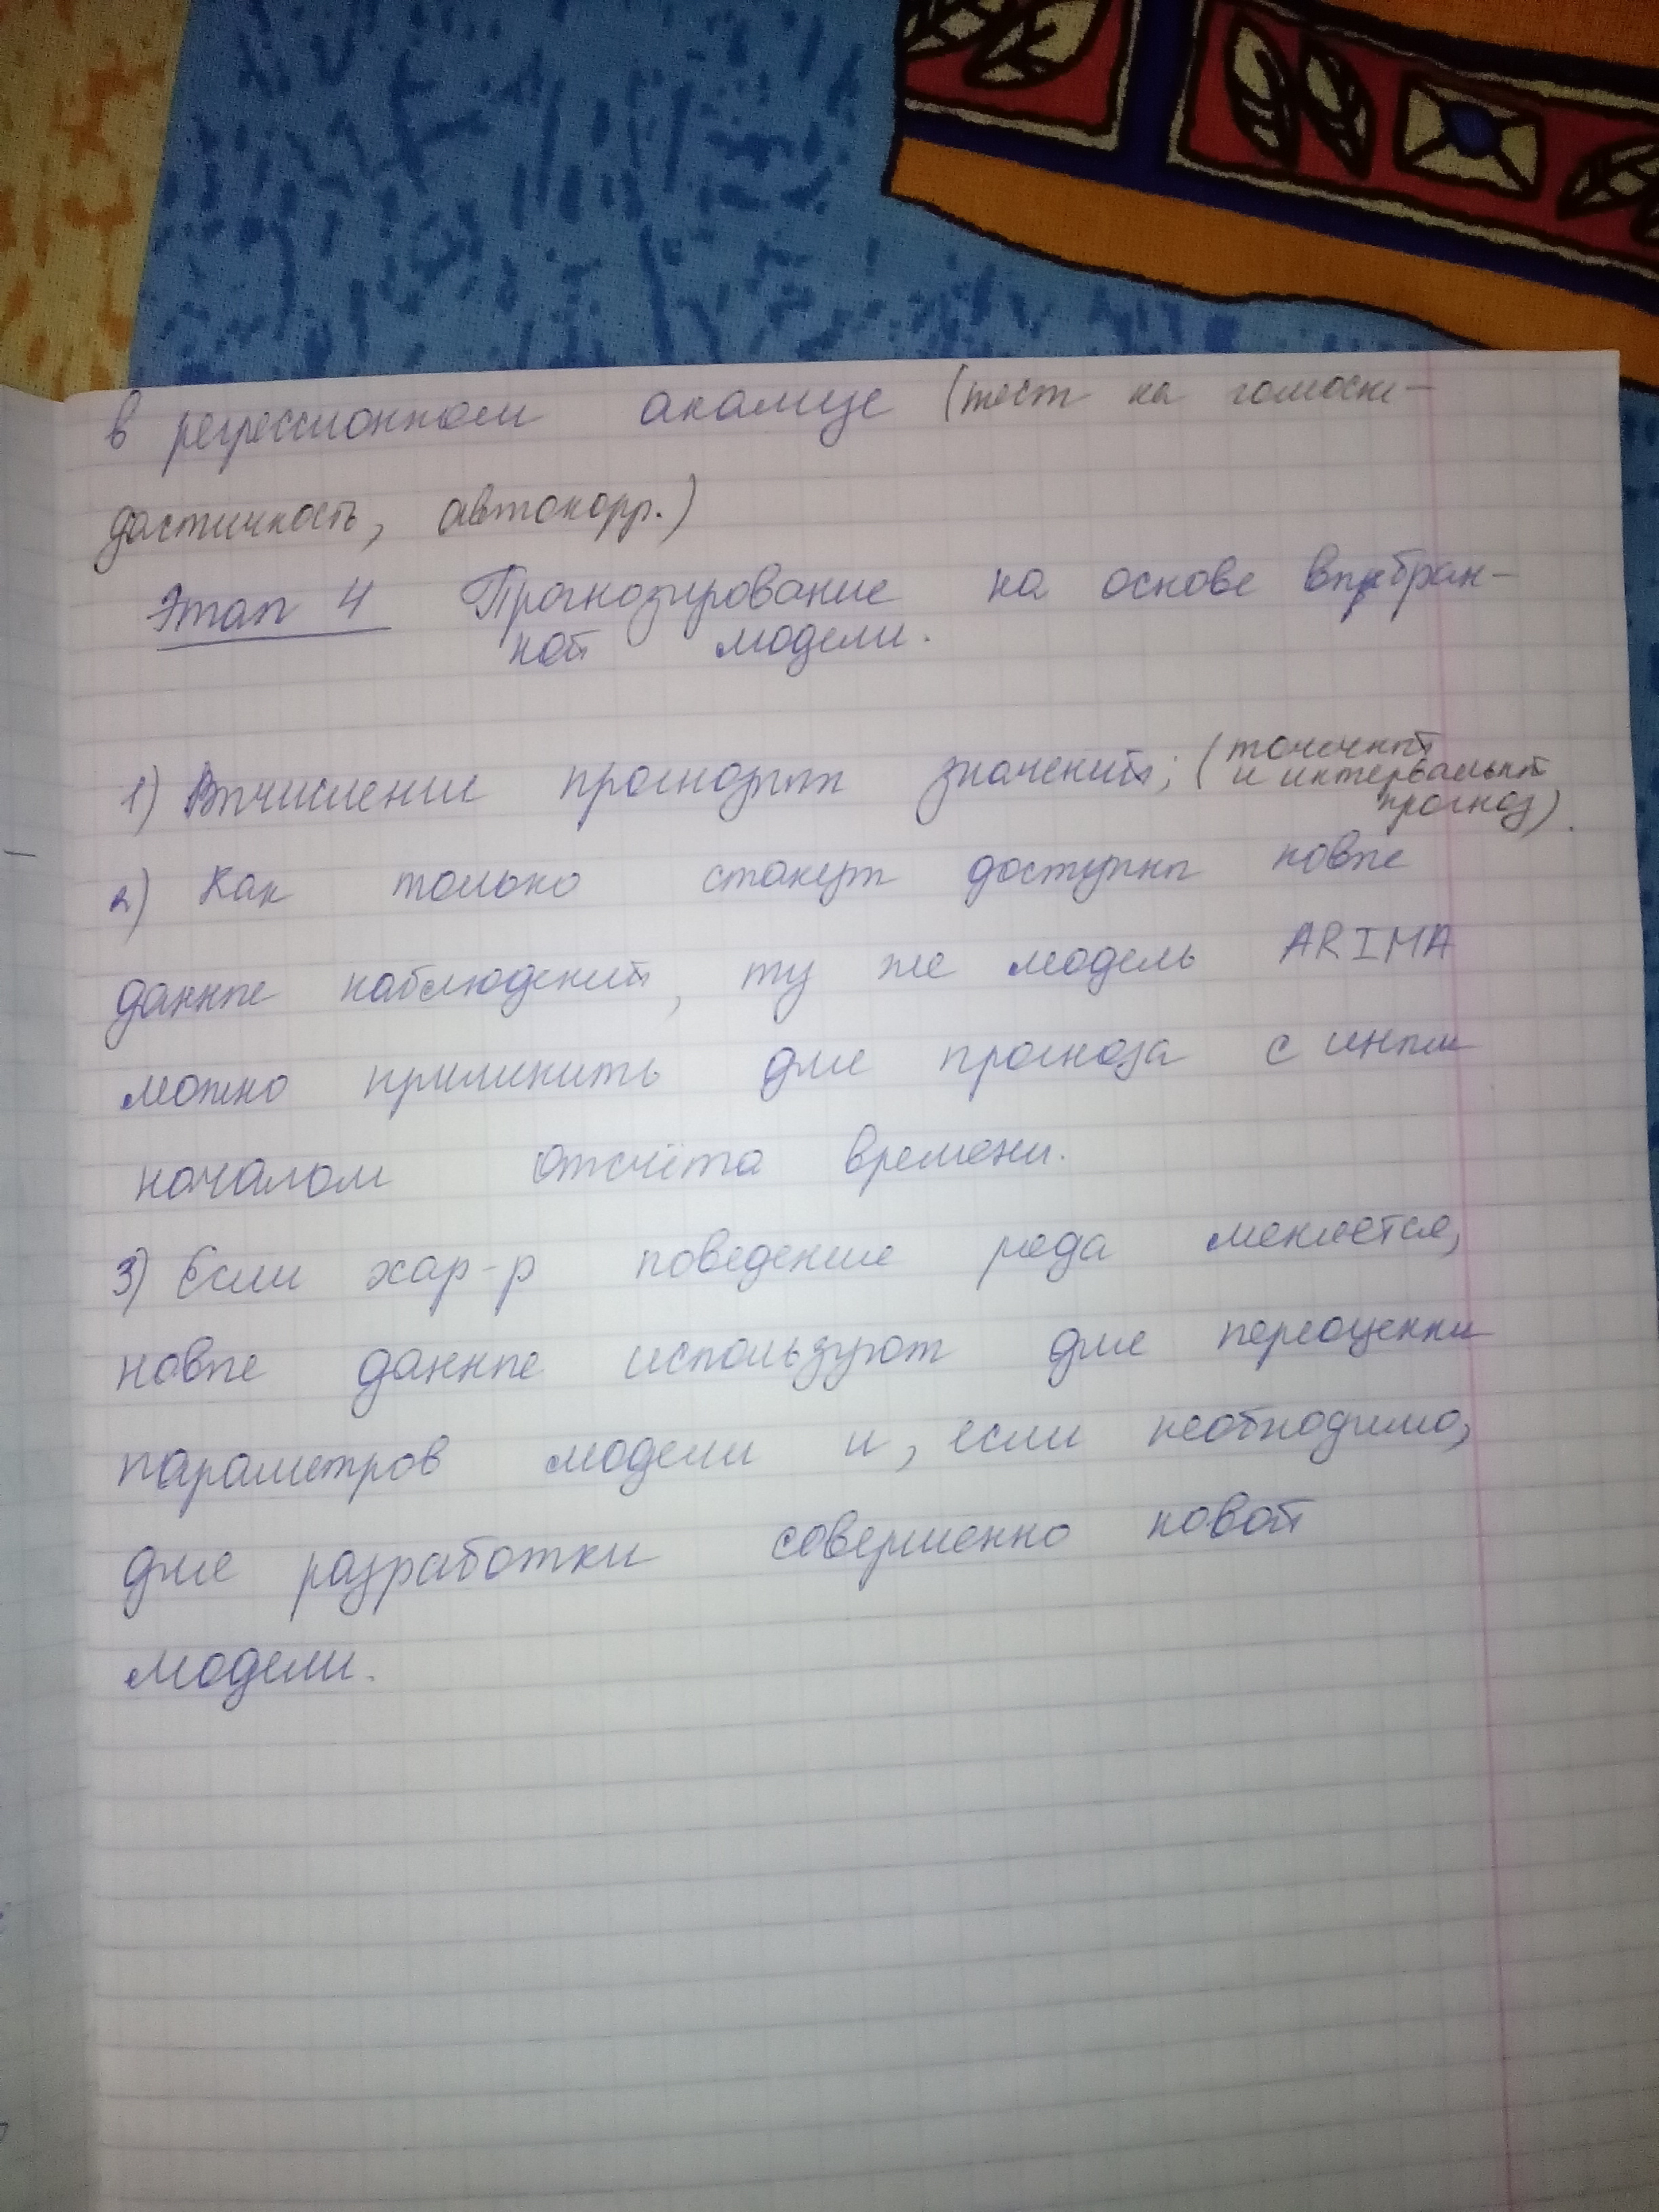 в регрессионном анализе (тест на гомоске-
дастичность, автокорр.)
Этап 4 Прогнозирование на основе выбран-
ной модели.
1) Вычисление прогнозных значений; (точечный
и интервальный
прогноз).
2) Как только станут доступны новые
данные наблюдений, ту же модель ARIMA
можно применить для прогноза с иным
началом отсчёта времени.
3) Если хар-р поведение ряда меняется,
новые данные используют для переоценки
параметров модели и, если необходимо,
для разработки совершенно новой
модели.